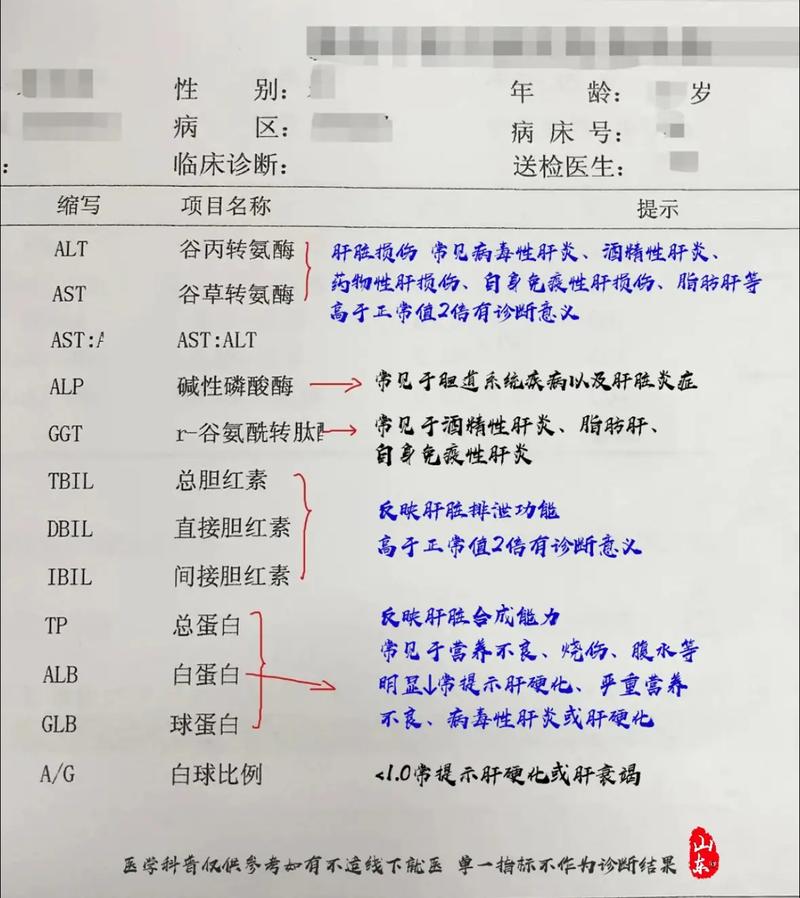 性 别：
年 龄： 岁
病 区：
病 床 号：
：
临床诊断：
送检医生：
缩写 项目名称 提示
ALT 谷丙转氨酶
肝脏损伤 常见病毒性肝炎、酒精性肝炎、
AST 谷草转氨酶
药物性肝损伤、自身免疫性肝损伤、脂肪肝等
高于正常值2倍有诊断意义
AST:A AST:ALT
ALP 碱性磷酸酶 常见于胆道系统疾病以及肝脏炎症
GGT r-谷氨酰转肽酶 常见于酒精性肝炎、脂肪肝、
自身免疫性肝炎
TBIL 总胆红素
反映肝脏排泄功能
DBIL 直接胆红素
高于正常值2倍有诊断意义
IBIL 间接胆红素
TP 总蛋白 反映肝脏合成能力
常见于营养不良、烧伤、腹水等
ALB 白蛋白
明显↓常提示肝硬化、严重营养
GLB 球蛋白 不良、病毒性肝炎或肝硬化
A/G 白球比例 <1.0常提示肝硬化或肝衰竭
医学科普仅供参考如有不适线下就医 单一指标不作为诊断结果
山东